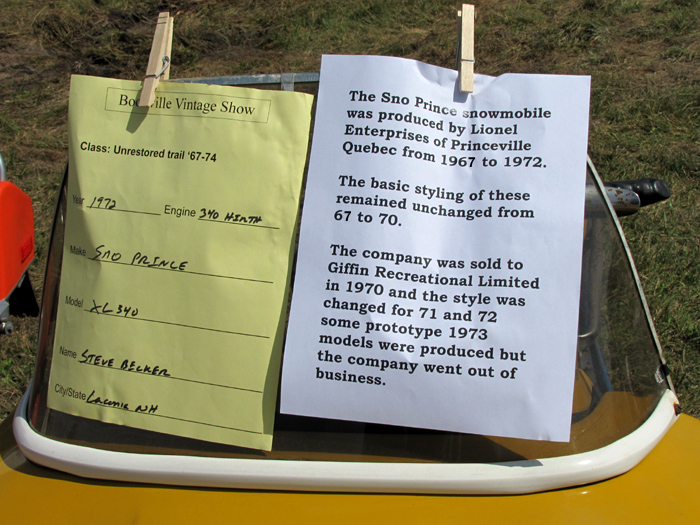 Vintage Show
Class: Unrestored trail '67-74
Year 1972 Engine 340 HIRTH
Make SNO PRINCE
Model XL340
Name STEVE BECKER
City/State Laconia NH
The Sno Prince snowmobile
was produced by Lionel
Enterprises of Princeville
Quebec from 1967 to 1972.
The basic styling of these
remained unchanged from
67 to 70.
The company was sold to
Giffin Recreational Limited
in 1970 and the style was
changed for 71 and 72
some prototype 1973
models were produced but
the company went out of
business.